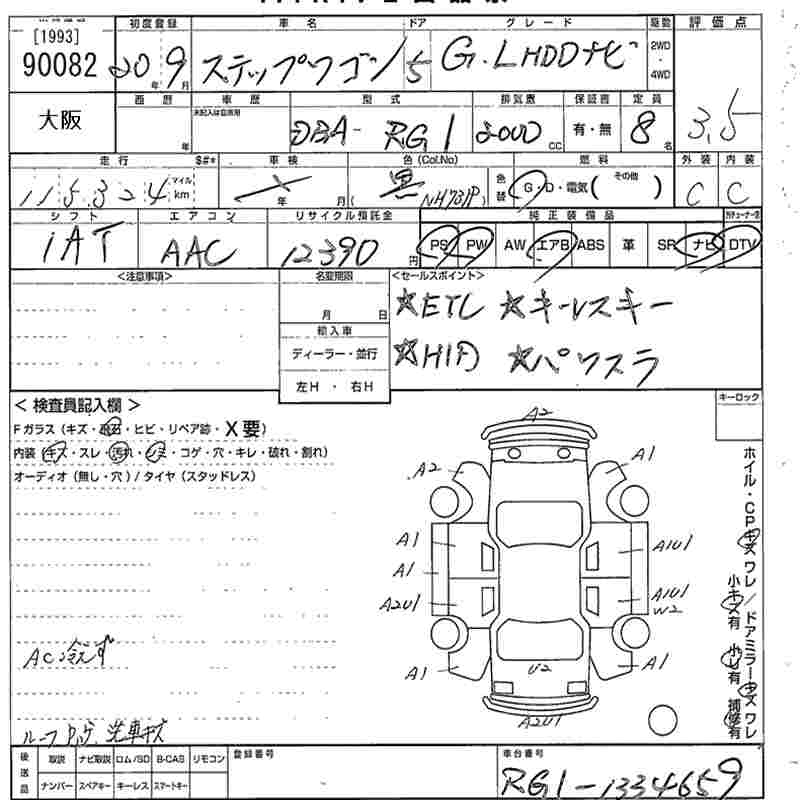 [1993]
90082
大阪
初度登録 車名 ドア グレード 駆動 評価点
20 年 9 月 ステップワゴン 5 G.LHDDナビ 2WD・4WD 3.5
西暦 車歴 型式 排気量 保証書 定員
年 未記入は自家用 DBA- RG1 2000 CC 有・無 8 名
走行 S#* 車検 色(Col.No) 燃料 外装 内装
115,324 マイル km 年 月 ( 黒 NH731P) 色替 G・D・電気( その他 ) C C
シフト エアコン リサイクル預託金 純正装備品
IAT AAC 12390 円 PS PW AW エアB ABS 革 SR ナビ DTV
<注意事項> 名変期限 <セールスポイント>
月 日 ☆ETC ☆キーレスキー
輸入車
ディーラー・並行 ☆HID ☆パワスラ
左H・右H
< 検査員記入欄 > キーロック
Fガラス(キズ・飛石・ヒビ・リペア跡・X要)
内装(キズ・スレ・汚れ・シミ・コゲ・穴・キレ・破れ・割れ)
オーディオ(無し・穴)/タイヤ(スタッドレス)
A2
A2 A1
A1 A1U1
A1
A2U1 A1U1
W2
A1 U2 A1
A2U1
ホイル・CPキズワレ/ドアミラーキズワレ
小キズ有 小U有 補修有
AC冷えず
ルーフ 洗車キズ
後送品 取説 ナビ取説 ロム/SD B-CAS リモコン 登録番号 車台番号
ナンバー スペアキー キーレス スマートキー RG1-1334659